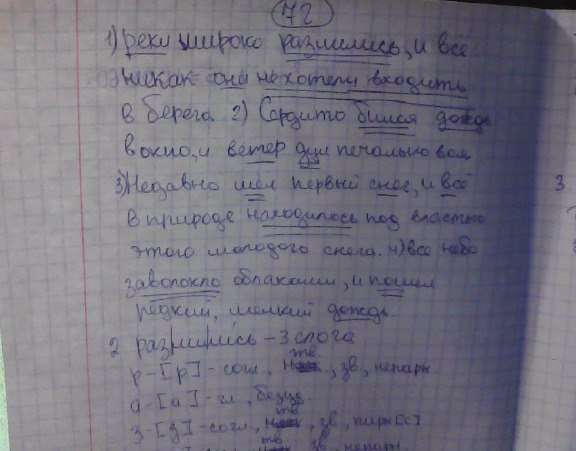 72
1) реки широко разлились, и всё
никак они не хотели входить
в берега 2) Сердито бился дождь
в окно, и ветер дул печально вол
3) Недавно шёл первый снег, и всё
в природе находилось под властью
этого молодого снега. 4) все небо
заволокло облаками, и пошел
редкий, мелкий дождь.
2 разлились - 3 слога
р-[р]-согл, тв., зв, непарн
а-[а]-гл, безуд.
з-[з]-согл., тв, зв, парн [с]
тв зв. непарн.
3